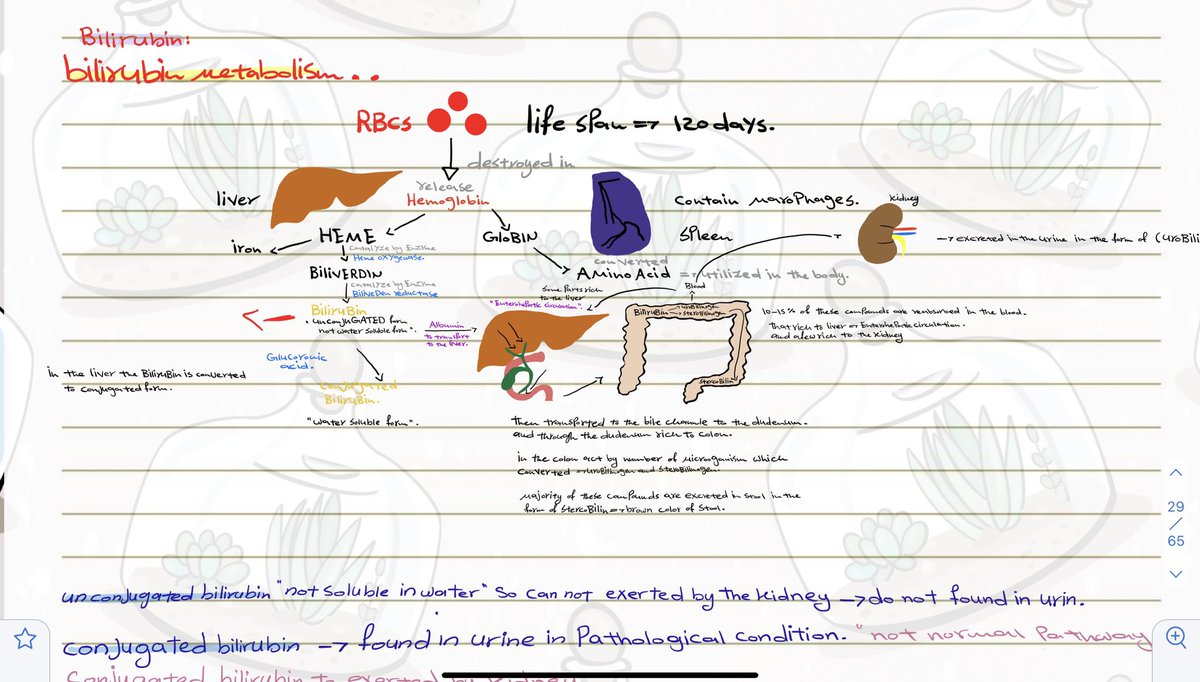 Bilirubin:
bilirubin metabolism..
RBCs life span => 120 days.
destroyed in
liver
release
Hemoglobin
Contain macrophages.
Spleen
kidney
iron
HEME
GloBIN
catalyze by Enzyme
Heme oxygenase.
converted
Amino Acid => utilized in the body.
→ excreted in the urine in the form of (uroBili
BiliVERDIN
catalyze by Enzyme
BiliVeDen reductase
Some Parts rich
to the liver
"Enterohepatic circulation".
Blood
BiliruBin
• unconjuGATED form
not water soluble form".
Albumin
to transfart
to the liver.
BiliruBin →
stercoBilin
10-15% of these compaunds are reabsorbed in the blood.
that rich to liver or Enterohepatic circulation.
and a few rich to the kidney
Glucoronic
acid.
in the liver the BiliruBin is converted
to conjugated form.
conjugated
BiliruBin.
"water soluble form".
then transported to the bile channle to the dudenum.
and through the dudenum rich to colon.
in the colon act by number of microganism which
converted → uroBilinogen and steroBilinogen.
majority of these compaunds are excreted in stool in the
form of stercoBilin → brown color of stool.
unconjugated bilirubin "not soluble in water" So can not exerted by the kidney → do not found in urin.
conjugated bilirubin → found in urine in Pathological condition. "not normal Pathway
Conjugated bilirubin to exerted by kidney
29
/
65